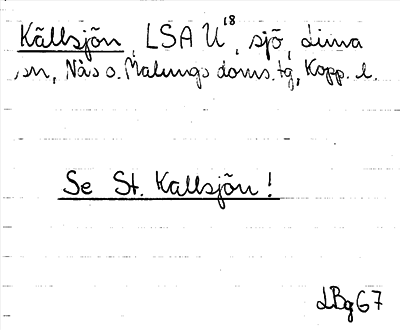 Källsjön, LSA U¹⁸, sjö, Lima
sn, Nås o. Malungs doms. tg, Kopp. l.
Se St. Kallsjön!
LBg 67